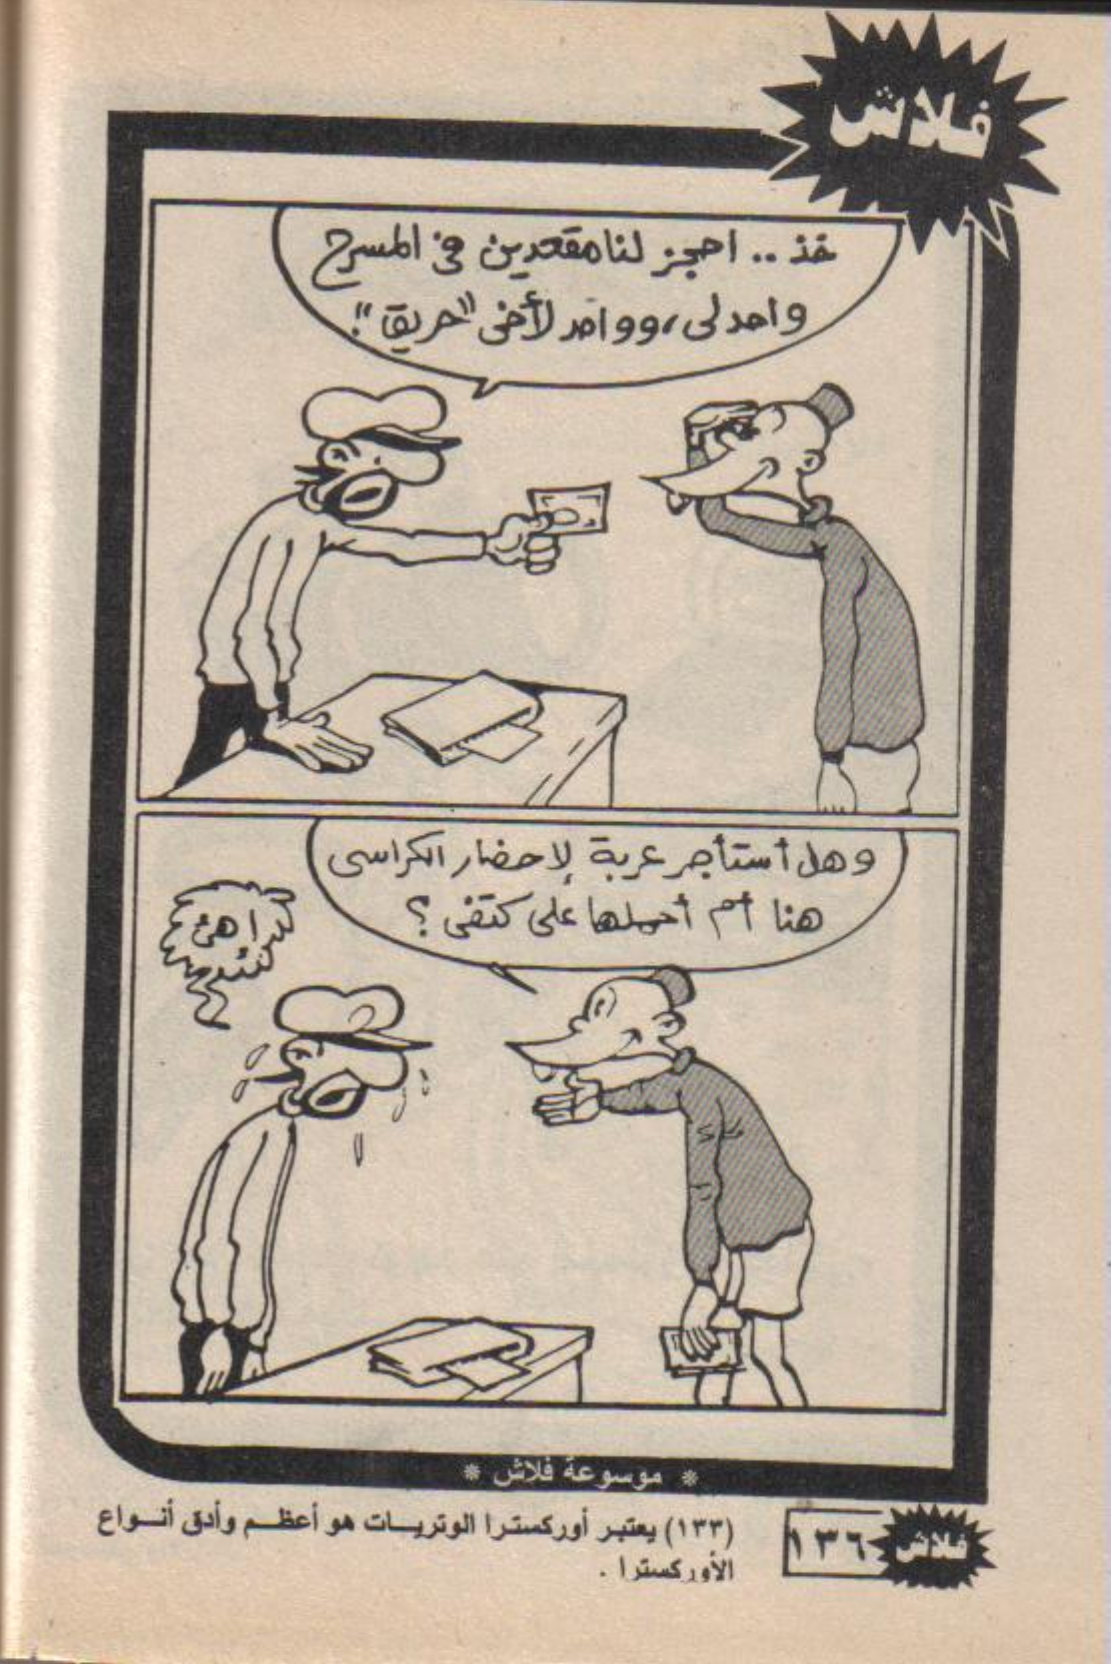 فلاش
خذ .. احجز لنا مقعدين في المسرح
واحد لى، وواحد لأخى "حريقة".
وهل أستأجر عربة لإحضار الكراسى
هنا أم أحملها على كتفى ؟
اهئ
* موسوعة فلاش *
(١٣٣) يعتبر أوركسترا الوتريات هو أعظم وأدق أنواع
الأوركسترا .
١٣٦
فلاش